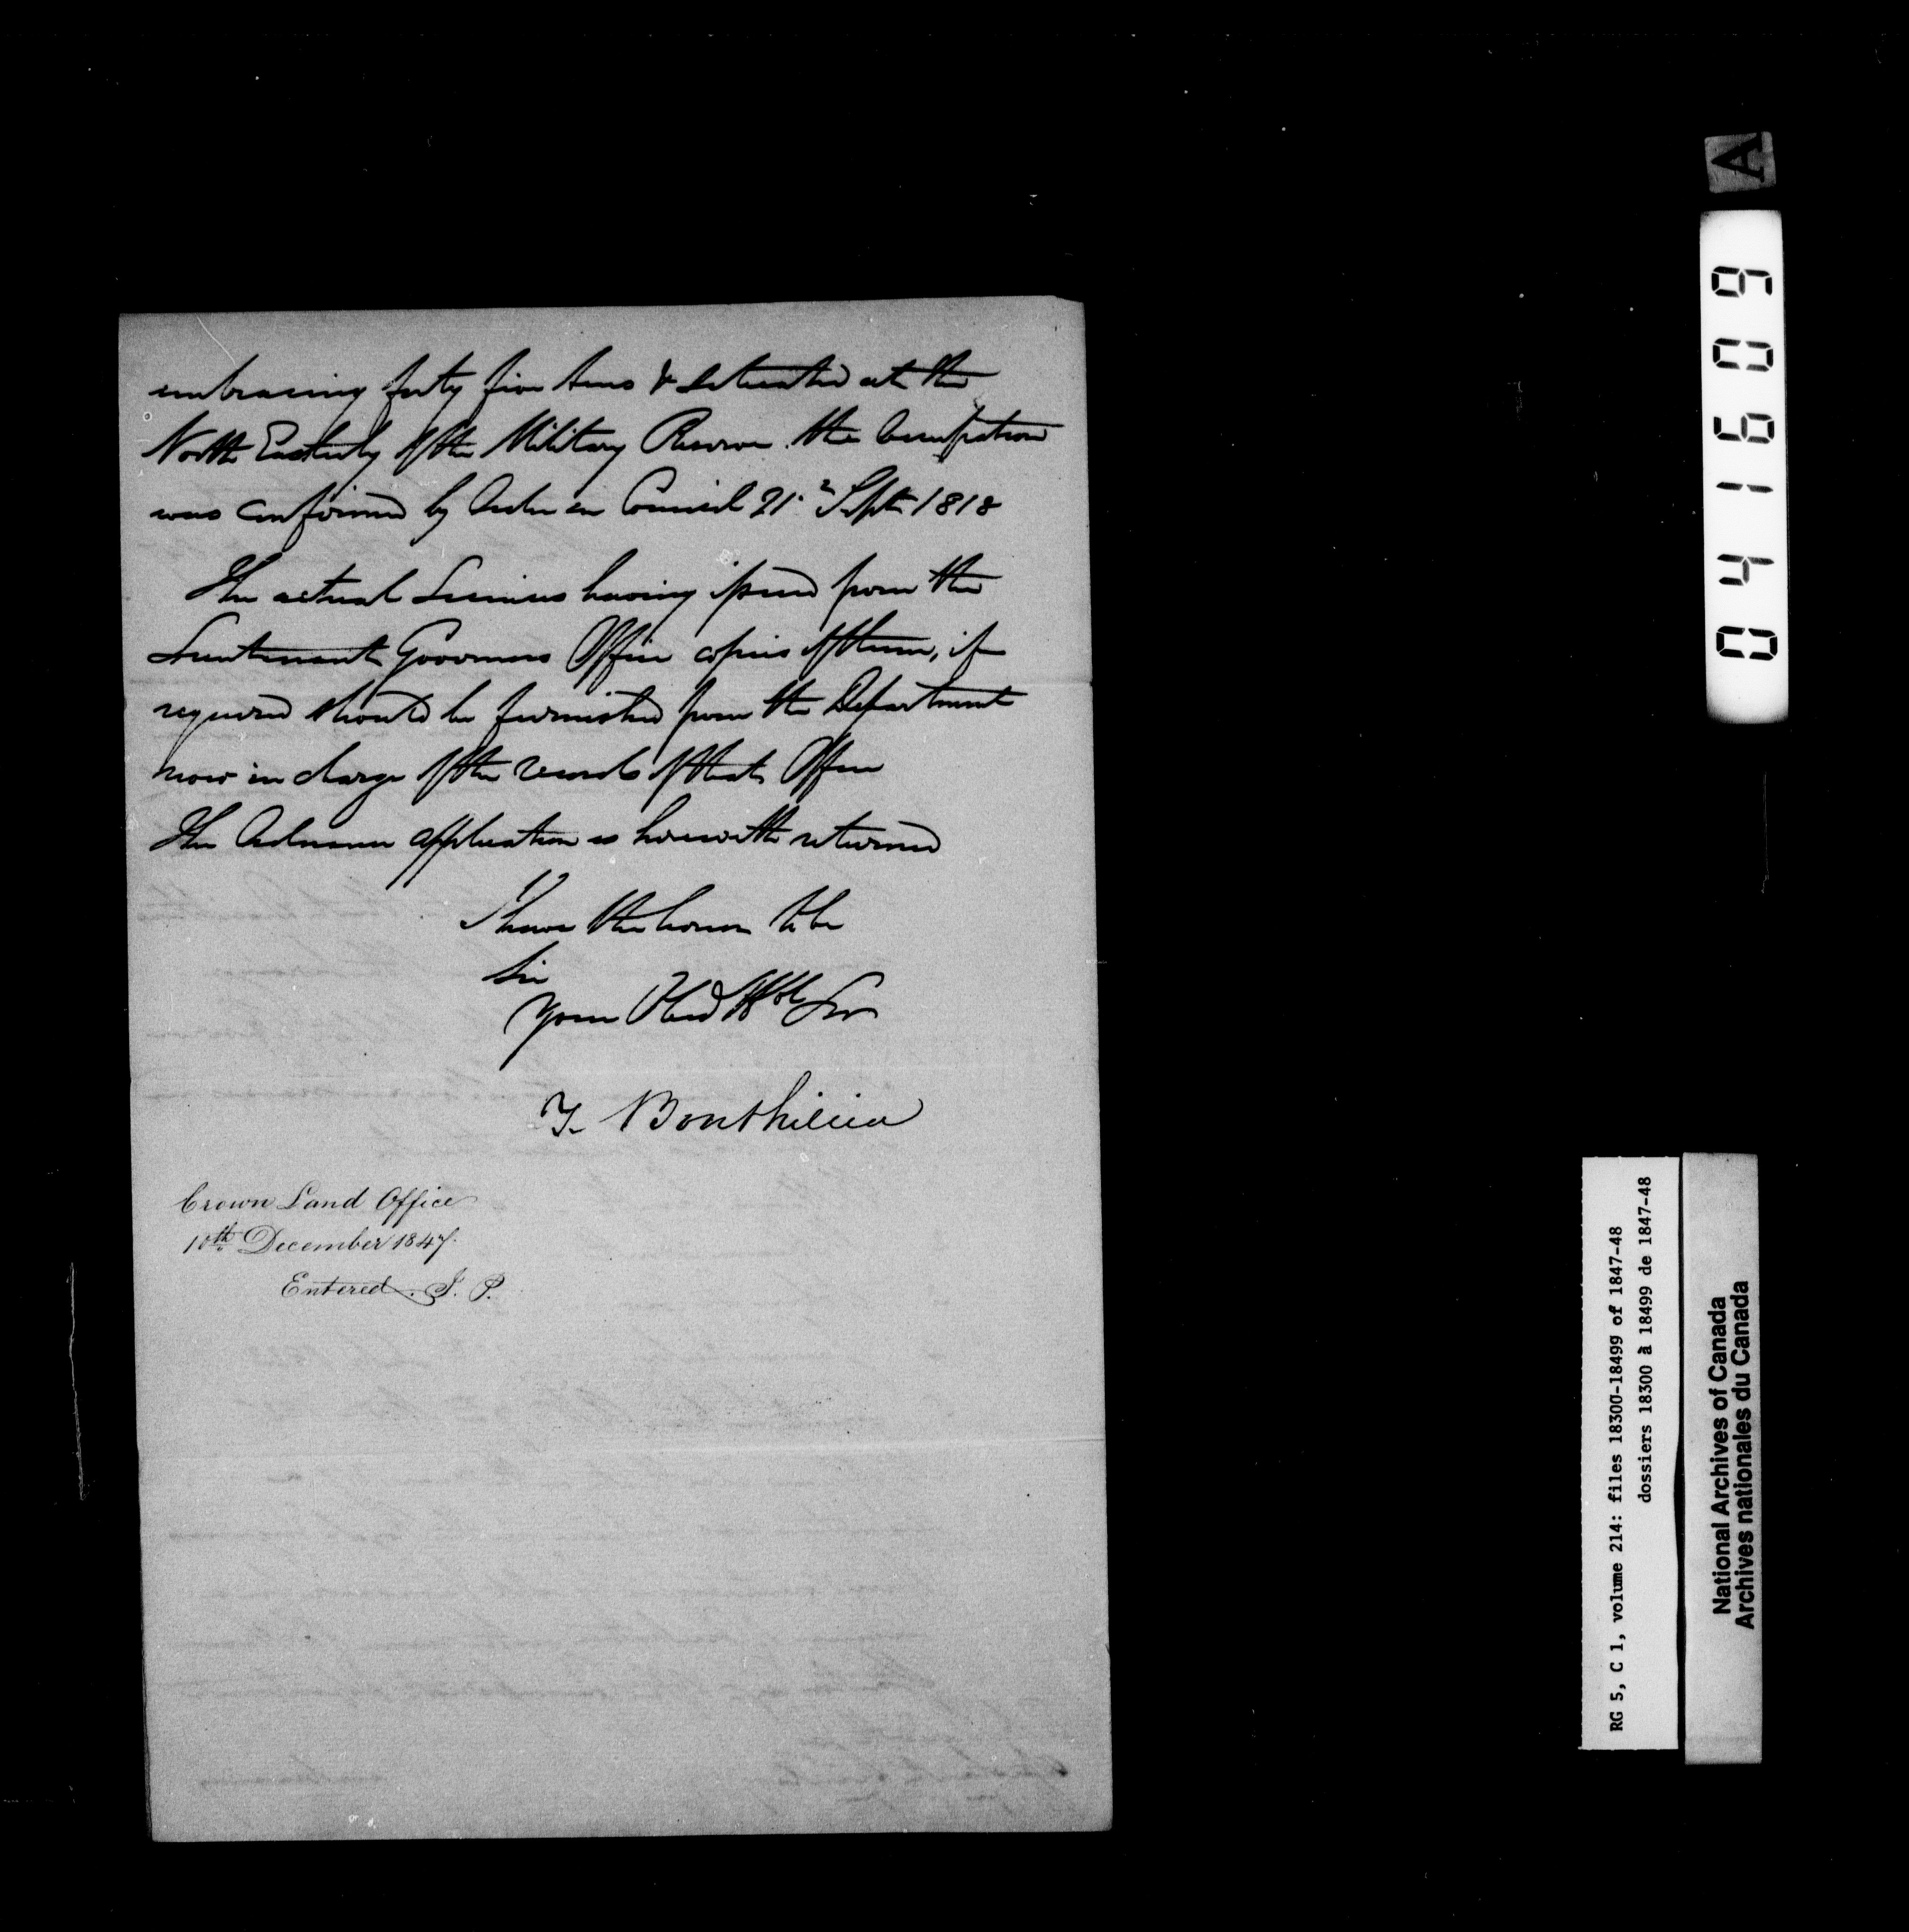 embracing forty five Acres & Situated at the
North Easterly of the Military Reserve. the Occupation
was confirmed by Order in Council 21. Sept 1818
The actual Licenses having issued from the
Lieutenant Governors Office copies of them, if
required should be furnished from the Department
now in charge of the records of that Office
The application is herewith returned
I have the honor to be
Sir
Your Obed Hble Ser
T. Bouthillier
Crown Land Office
10th December 1847.
Entered. J. P.
A
041609
RG 5, C 1, volume 214: files 18300-18499 of 1847-48
dossiers 18300 à 18499 de 1847-48
National Archives of Canada
Archives nationales du Canada